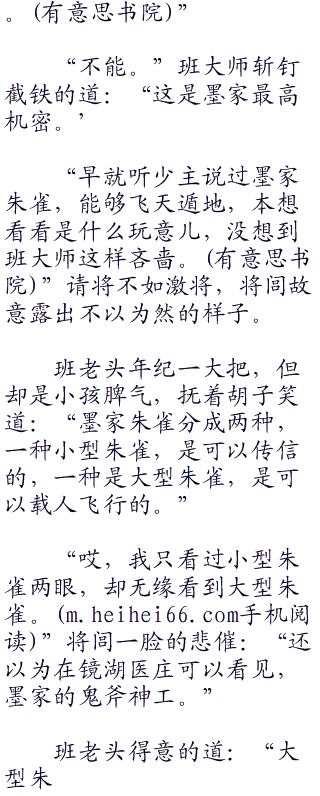 。(有意思书院)”
“不能。”班大师斩钉
截铁的道：“这是墨家最高
机密。’
“早就听少主说过墨家
朱雀，能够飞天遁地，本想
看看是什么玩意儿，没想到
班大师这样吝啬。(有意思书
院)”请将不如激将，将闾故
意露出不以为然的样子。
班老头年纪一大把，但
却是小孩脾气，抚着胡子笑
道：“墨家朱雀分成两种，
一种小型朱雀，是可以传信
的，一种是大型朱雀，是可
以载人飞行的。”
“哎，我只看过小型朱
雀两眼，却无缘看到大型朱
雀。(m.heihei66.com手机阅
读)”将闾一脸的悲催：“还
以为在镜湖医庄可以看见，
墨家的鬼斧神工。”
班老头得意的道：“大
型朱